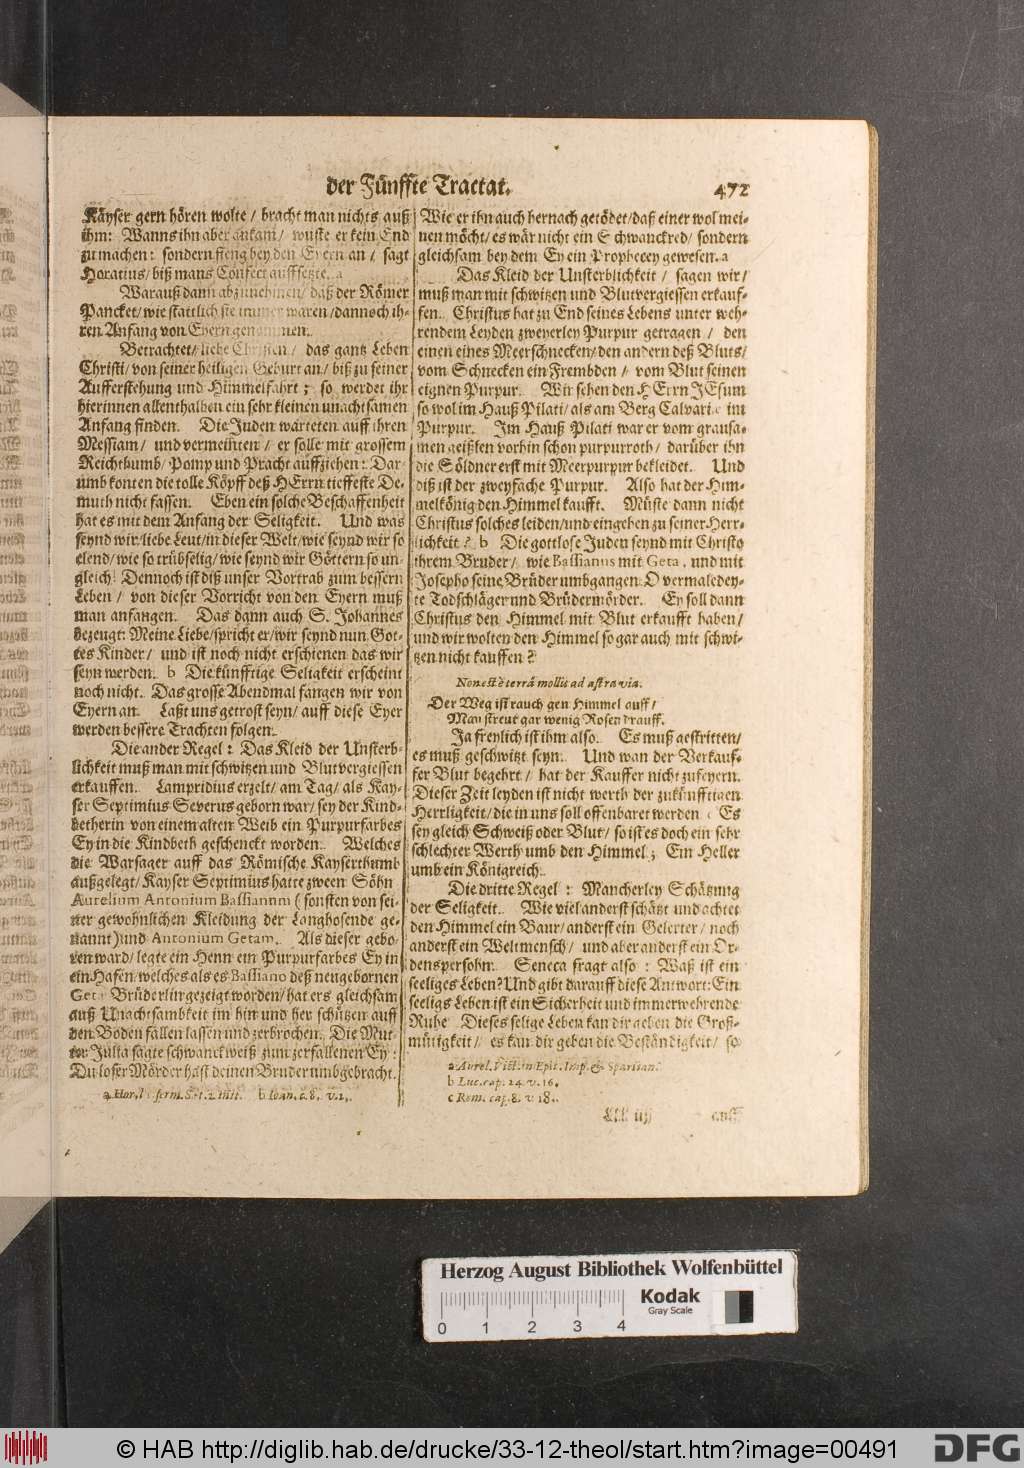 der Fünffte Tractat.
472
Käyser gern hören wolte / bracht man nichts auß
ihm: Wanns ihn aber ankam / wuste er kein End
zu machen: sondern fieng bey den Eyern an / sagt
Horatius / biß mans Confect auffsetzte. a
Warauß dann abzunehmen / daß der Römer
Pancket / wie stattlich sie immer waren / dannoch ih-
ren Anfang von Eyern genommen.
Betrachtet / liebe Christen / das gantz Leben
Christi / von seiner heiligen Geburt an / biß zu seiner
Aufferstehung und Himmelfahrt; so werdet ihr
hierinnen allenthalben ein sehr kleinen unachtsamen
Anfang finden. Die Juden warteten auff ihren
Messiam / und vermeinten / er solle mit grossem
Reichthumb / Pomp und Pracht auffziehen: Dar-
umb konten die tolle Köpff deß HErrn tieffeste De-
muth nicht fassen. Eben ein solche Beschaffenheit
hat es mit dem Anfang der Seligkeit. Und was
seynd wir / liebe Leut / in dieser Welt / wie seynd wir so
elend / wie so trübselig / wie seynd wir Göttern so un-
gleich! Dennoch ist diß unser Vortrab zum bessern
Leben / von dieser Vorricht von den Eyern muß
man anfangen. Das dann auch S. Johannes
bezeugt: Meine Liebe / spricht er / wir seynd nun Got-
tes Kinder / und ist noch nicht erschienen das wir
seyn werden. b Die künfftige Seligkeit erscheint
noch nicht. Das grosse Abendmal fangen wir von
Eyern an. Laßt uns getrost seyn / auff diese Eyer
werden bessere Trachten folgen.
Die ander Regel: Das Kleid der Unsterb-
lichkeit muß man mit schwitzen und Blutvergiessen
erkauffen. Lampridius erzelt / am Tag / als Kay-
ser Septimius Severus geborn war / sey der Kind-
betherin von einem alten Weib ein Purpurfarbes
Ey in die Kindbeth geschenckt worden. Welches
die Warsager auff das Römische Kayserthumb
außgelegt / Kayser Septimius hatte zween Söhn
Aurelium Antonium Bassianum (sonsten von sei-
ner gewohnlichen Kleidung der Langhosende ge-
nannt) und Antonium Getam. Als dieser gebo-
ren ward / legte ein Henn ein Purpurfarbes Ey in
ein Hafen / welches als es Bassiano deß neugebornen
Getæ Brüderlin gezeigt worden / hat ers gleichsam
auß Unachtsambkeit im hin und her schützen auff
den Boden fallen lassen und zerbrochen. Die Mut-
ter Julia sagte schwanckweiß zum zerfallenen Ey:
Du loser Mörder hast deinen Bruder umbgebracht.
a Horat. serm. Sat. 2. init. b Ioan. c. 8. v. 2.
Wie er ihn auch hernach getödet / daß einer wol mei-
nen möcht / es wär nicht ein Schwanckred / sondern
gleichsam bey dem Ey ein Prophecey gewesen. a
Das Kleid der Unsterblichkeit / sagen wir /
muß man mit schwitzen und Blutvergiessen erkauf-
fen. Christus hat zu End seines Lebens unter weh-
rendem Leyden zweyerley Purpur getragen / den
einen eines Meerschnecken / den andern deß Bluts /
vom Schnecken ein Frembden / vom Blut seinen
eignen Purpur. Wir sehen den HErrn JEsum
so wol im Hauß Pilati / als am Berg Calvariæ im
Purpur. Im Hauß Pilati war er vom grausa-
men geißlen vorhin schon purpurroth / darüber ihn
die Söldner erst mit Meerpurpur bekleidet. Und
diß ist der zweyfache Purpur. Also hat der Him-
melkönig den Himmel kaufft. Müste dann nicht
Christus solches leiden / und eingehen zu seiner Herr-
lichkeit? b Die gottlose Juden seynd mit Christo
ihrem Bruder / wie Bassianus mit Geta, und mit
Josepho seine Brüder umbgangen. O vermaledey-
te Todschläger und Brüdermörder. Ey soll dann
Christus den Himmel mit Blut erkaufft haben /
und wir wolten den Himmel so gar auch mit schwi-
tzen nicht kauffen?
Non est è terrâ mollis ad astra via.
Der Weg ist rauch gen Himmel auff /
Man streut gar wenig Rosen drauff.
Ja freylich ist ihm also. Es muß gestritten /
es muß geschwitzt seyn. Und wan der Verkauf-
fer Blut begehrt / hat der Kauffer nicht zufeyern.
Dieser Zeit leyden ist nicht werth der zukünfftigen
Herrligkeit / die in uns soll offenbaret werden c Es
sey gleich Schweiß oder Blut / so ist es doch ein sehr
schlechter Werth umb den Himmel; Ein Heller
umb ein Königreich.
Die dritte Regel: Mancherley Schätzung
der Seligkeit. Wie viel anderst schätzt und achtet
den Himmel ein Baur / anderst ein Gelerter / noch
anderst ein Weltmensch / und aber anderst ein Or-
denspersohn. Seneca fragt also: Waß ist ein
seeliges Leben? Und gibt darauff diese Antwort: Ein
seeligs Leben ist ein Sicherheit und immerwehrende
Ruhe Dieses selige Leben kan dir geben die Groß-
mütigkeit / es kan dir geben die Beständigkeit / so
a Aurel. Vict. in Epit. Imp. & Spartian.
b Luc. cap. 24. v. 16.
c Rom. cap. 8. v 18.
Lll iiij
auff
Herzog August Bibliothek Wolfenbüttel
Kodak
Gray Scale
0 1 2 3 4
© HAB http://diglib.hab.de/drucke/33-12-theol/start.htm?image=00491
DFG